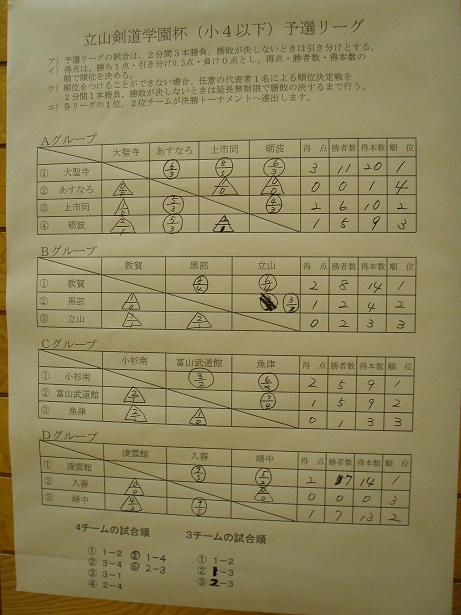 立山剣道学園杯（小４以下）予選リーグ
ア）予選リーグの試合は、２分間３本勝負、勝敗が決しないときは引き分けとする。
イ）得点は、勝ち１点・引き分け0.5点・負け０点とし、得点・勝者数・得本数の
順で順位を決める。
ウ）順位をつけることができない場合、任意の代表者１名による順位決定戦を
２分間１本勝負、勝敗が決しないときは延長無制限で勝敗の決するまで行う。
エ）各リーグの１位、２位チームが決勝トーナメントへ進出します。
Ａグループ
大聖寺 あすなろ 上市同 砺波 得 点 勝者数 得本数 順 位
① 大聖寺 3 11 20 1
② あすなろ 0/0 0 0 1 4
③ 上市同 5/3 4/3 2 6 10 2
④ 砺波 2/1 5/3 1 5 9 3
Ｂグループ
敦賀 黒部 立山 得 点 勝者数 得本数 順 位
① 敦賀 8/4 6/4 2 8 14 1
② 黒部 1/0 3/2 1 2 4 2
③ 立山 2/1 0 2 3 3
Ｃグループ
小杉南 富山武道館 魚津 得 点 勝者数 得本数 順 位
① 小杉南 3/2 6/3 2 5 9 1
② 富山武道館 2/1 7/4 1 5 9 2
③ 魚津 2/1 1/0 0 1 3 3
Ｄグループ
凌雲館 入善 婦中 得 点 勝者数 得本数 順 位
① 凌雲館 9/5 5/2 2 7 14 1
② 入善 0/0 0 0 0 3
③ 婦中 4/2 9/5 1 7 13 2
4チームの試合順 3チームの試合順
① 1－2 ⑤ 1－4 ① 1－2
② 3－4 ⑥ 2－3 ② 1－3
③ 3－1 ③ 2－3
④ 2－4